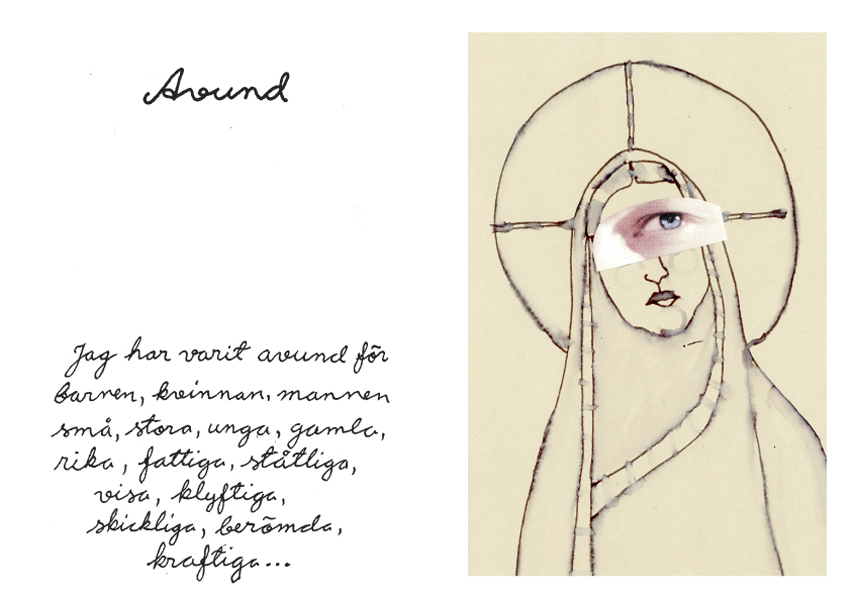 Avund
Jag har varit avund för
barnen, kvinnan, mannen
små, stora, unga, gamla,
rika, fattiga, ståtliga,
visa, klyftiga,
skickliga, berömda,
kraftiga...